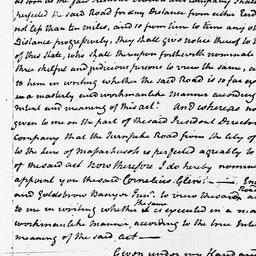 as soon as the said President Directors and Company shall
perfected the said Road for any Distance from either End
not less than ten miles, and so from time to time any oth
Distance progressively, they shall give notice thereof to th
of this State, who shall thereupon forthwith nominate
three skilful and judicious persons to view the same, a
to him in writing whether the said Road is so far exe
in a masterly and workmanlike manner according
intent and meaning of this act." And whereas no
given to me on the part of the said President Director
Company that the Turnpike Road from the City of
to the line of Massachusets is perfected agreeably to
of the said act Now therefore I do hereby nomin
appoint you the said Cornelius Glen,
and Goldsbrow Banyar Junr. to view the said Road
to me in writing whether the same is executed in a ma
workmanlike manner, according to the true Inten
meaning of the said act —
Given under my Hand and